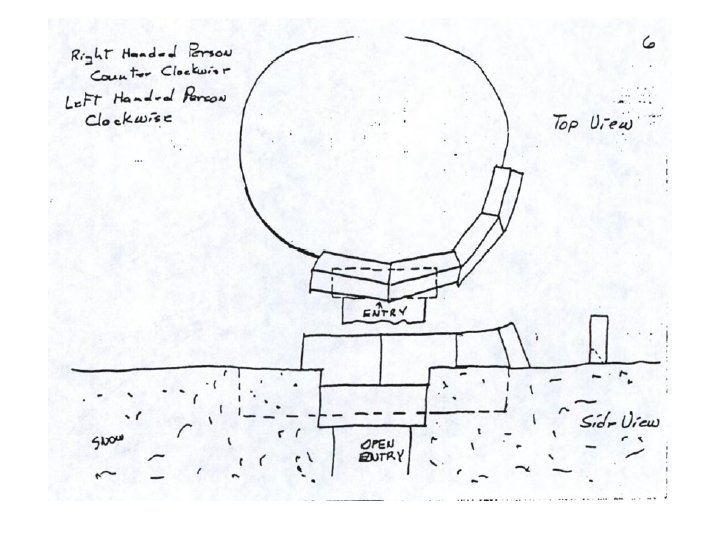 Right Handed Person
Counter Clockwise
Left Handed Person
Clockwise
6
Top View
ENTRY
Side View
SNOW
OPEN
ENTRY